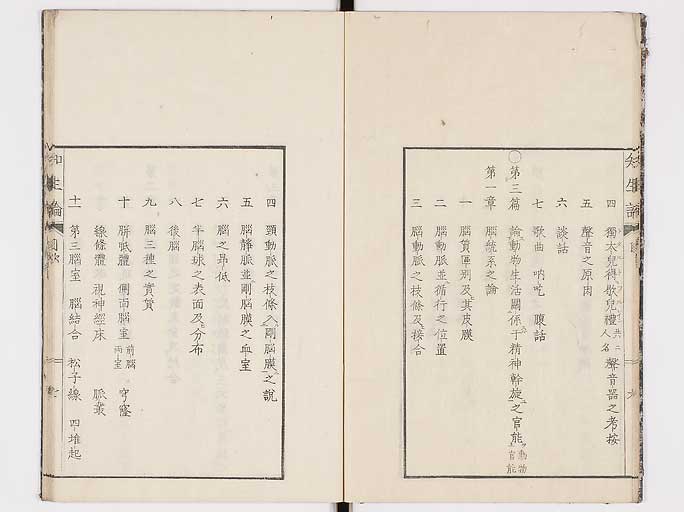 四 獨太兒得歇兒禮 共ニ人名 聲音器之考按
五 聲音之原由
六 談話
七 歌曲 吶吃 腹話
第三篇 論動物生活關係于精神幹旋之官能 動物官能
第一章 腦髓系之論
一 腦質區別及其皮膜
二 腦動脈並循行之位置
三 腦動脈之枝條及接合
四 頸動脈之枝條入剛腦膜之說
五 腦靜脈並剛腦膜之血室
六 腦之昂低
七 半腦球之表面及分布
八 後腦
九 腦三種之實質
十 胼胝體 側面腦室 前腦兩室 穹窿
線條體 視神經床 脈叢
十一 第三腦室 腦結合 松子線 四堆起
知生論
目次
七